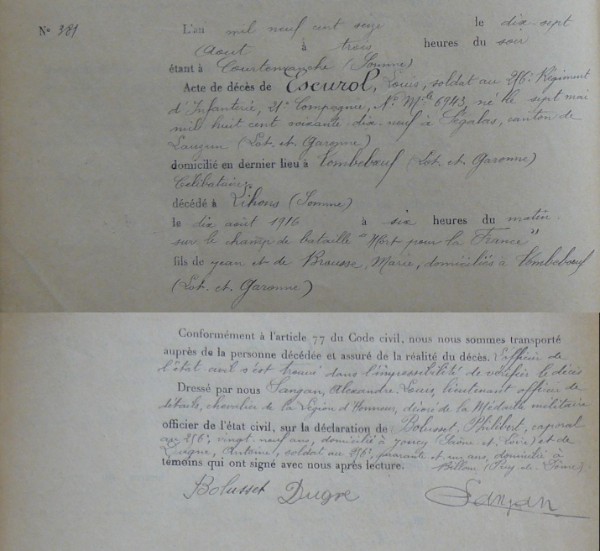 N° 381
L'an mil neuf cent seize le dix sept
Aout à trois heures du soir
étant à Courtemanche (Somme)
Acte de décès de Escurol, Louis, soldat au 216e Régiment
d'Infanterie, 21e Compagnie, N° Mle 6943, né le sept mai
mil huit cent soixante dix neuf à Ségalas, canton de
Lauzun (Lot et Garonne)
domicilié en dernier lieu à Tombebœuf (Lot et Garonne)
Célibataire,
décédé à Lihons (Somme)
le dix août 1916 à six heures du matin
sur le champ de bataille "Mort pour la France"
fils de Jean et de Brousse, Marie, domiciliés à Tombebœuf
(Lot et Garonne)
Conformément à l'article 77 du Code civil, nous nous sommes transporté
auprès de la personne décédée et assuré de la réalité du décès. L'officier de
l'état civil s'est trouvé dans l'impossibilité de vérifier le décès
Dressé par nous Sanjan, Alexandre, Louis, lieutenant officier de
détails, chevalier de la Légion d'Honneur, décoré de la Médaille militaire
officier de l'état civil, sur la déclaration de Bolusset, Philibert, caporal
au 216e, vingt neuf ans, domicilié à (Saône et Loire) et de
Antoine, soldat au 216e, quarante et un ans, domicilié à
témoins qui ont signé avec nous après lecture. Billom (Puy de Dôme).
Bolusset Sanjan